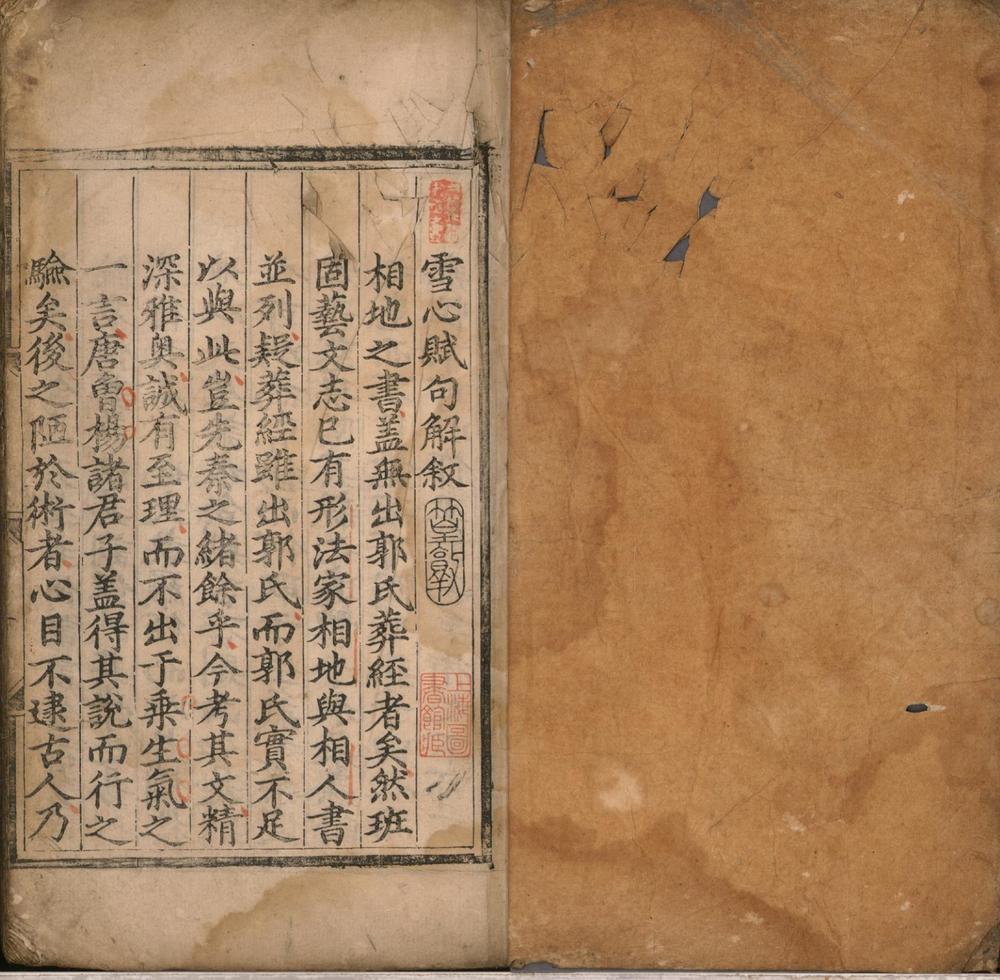 雪心賦句解敘
上海圖書館藏
相地之書盖無出郭氏葬經者矣然班
固藝文志已有形法家相地與相人書
並列疑葬經雖出郭氏而郭氏實不足
以與此豈先秦之緒餘乎今考其文精
深雅奥誠有至理而不出于乗生氣之
一言唐曾楊諸君子盖得其說而行之
驗矣後之陋於術者心目不逮古人乃